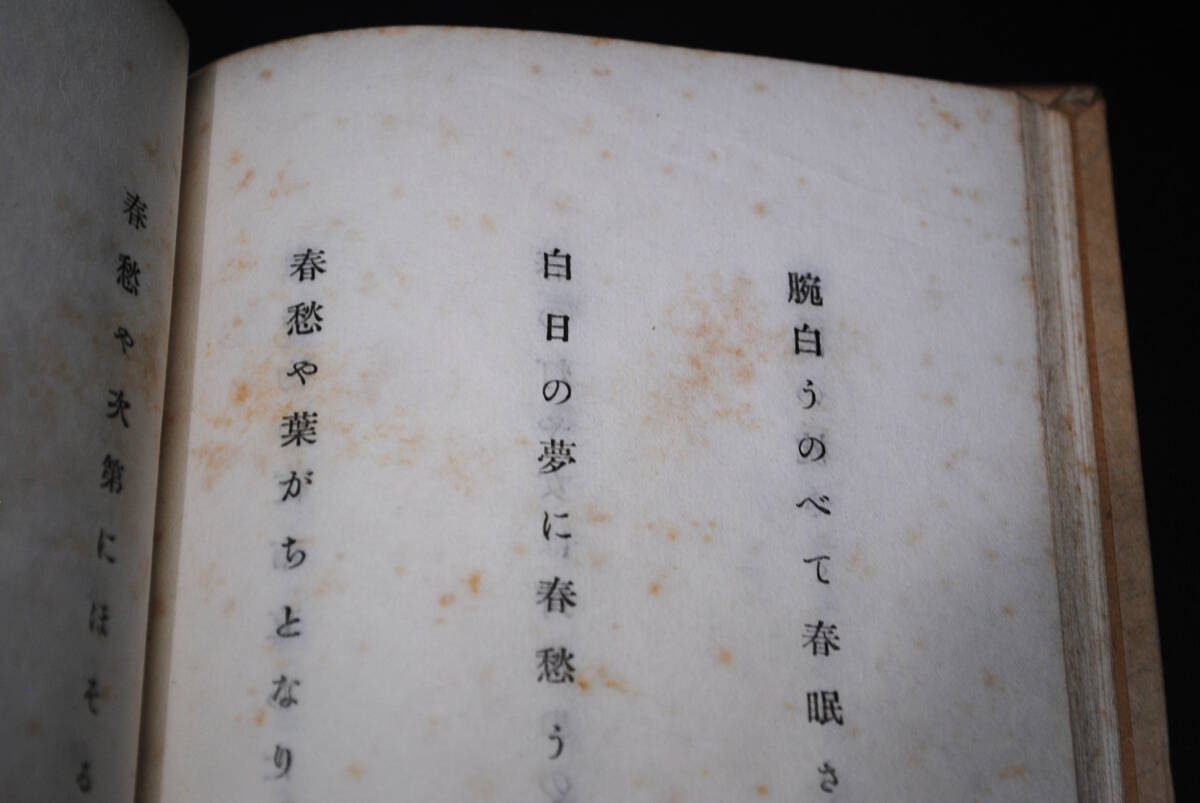 腕白うのべて春眠さ
白日の夢に春愁うの
春愁や葉がちとなり
春愁や次第にほそる